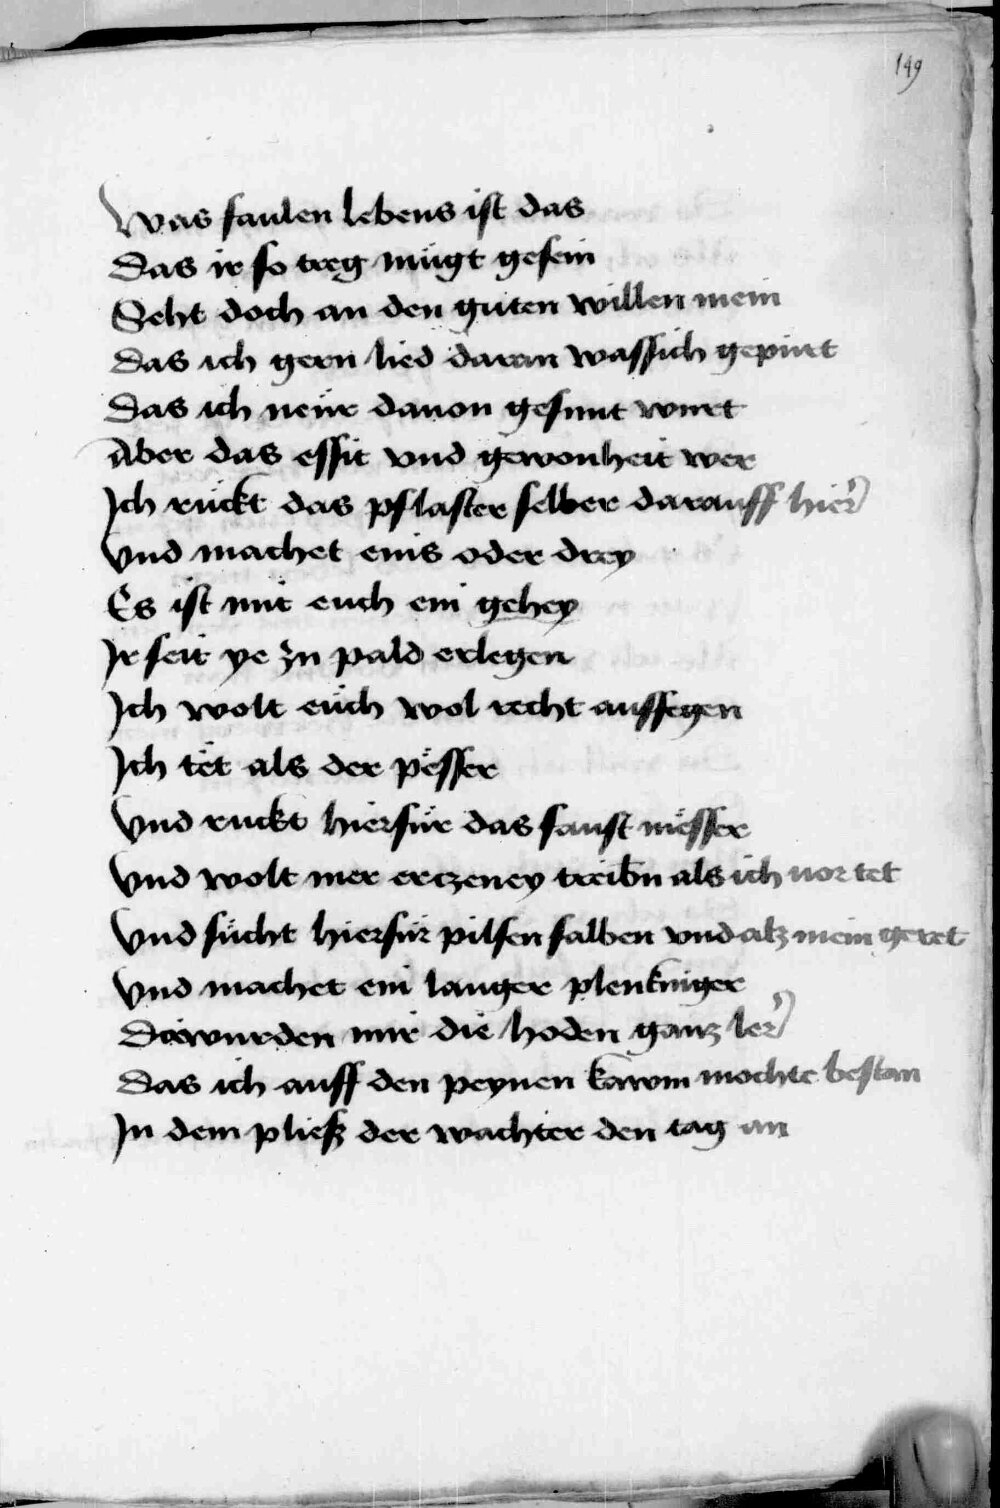 149
Was faulen lebens ist das
Das ir so treg mügt gesein
Seht doch an den guten willen mein
Das ich gern lied daran was sich gepürt
Das ich neür dauon gesunt wurt
Aber das essit vnd gewonheit wer
Ich ruckt das pflaster selber darauff hier
Vnd machet eins oder drey
Es ist mit euch ein gehey
Ir seit ye zu pald erlegen
Ich wolt euch wol recht aussfegen
Ich tet als der pösser
Vnd ruckt hierfür das faust messer
Vnd wolt mer erczeney treibn als ich vor tet
Vnd sücht hierfür pilsen salben vnd alz mein geret
Vnd machet ein langer plenkniger
Do wurden mir die hoden ganz ler
Das ich auff den peynen kawm mochte bestan
In dem pließ der wachter den tag an